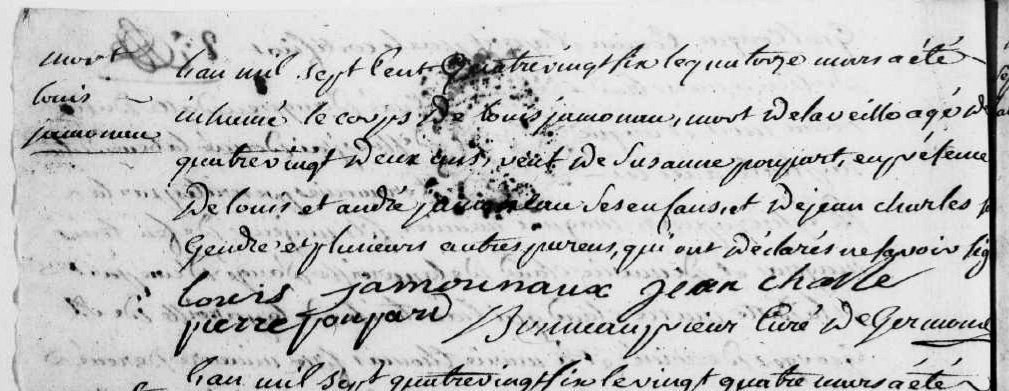 mort
louis
jamonau
L'an mil sept Cent Quatrevingt six le quatorze mars a été
inhumé le corps de Louis jamonau, mort de la veille agé de
quatrevingt deux ans, veuf de Susanne poupart, en présence
De louis et andré jamoneau ses enfans, et de jean charles
Gendre et plusieurs autres parens, qui ont déclarés ne savoir sig
Louis jamounaux jean charle
pierre poupard Bonneau prieur Curé de Germond
L'an mil sept quatrevingt six le vingt quatre mars a été